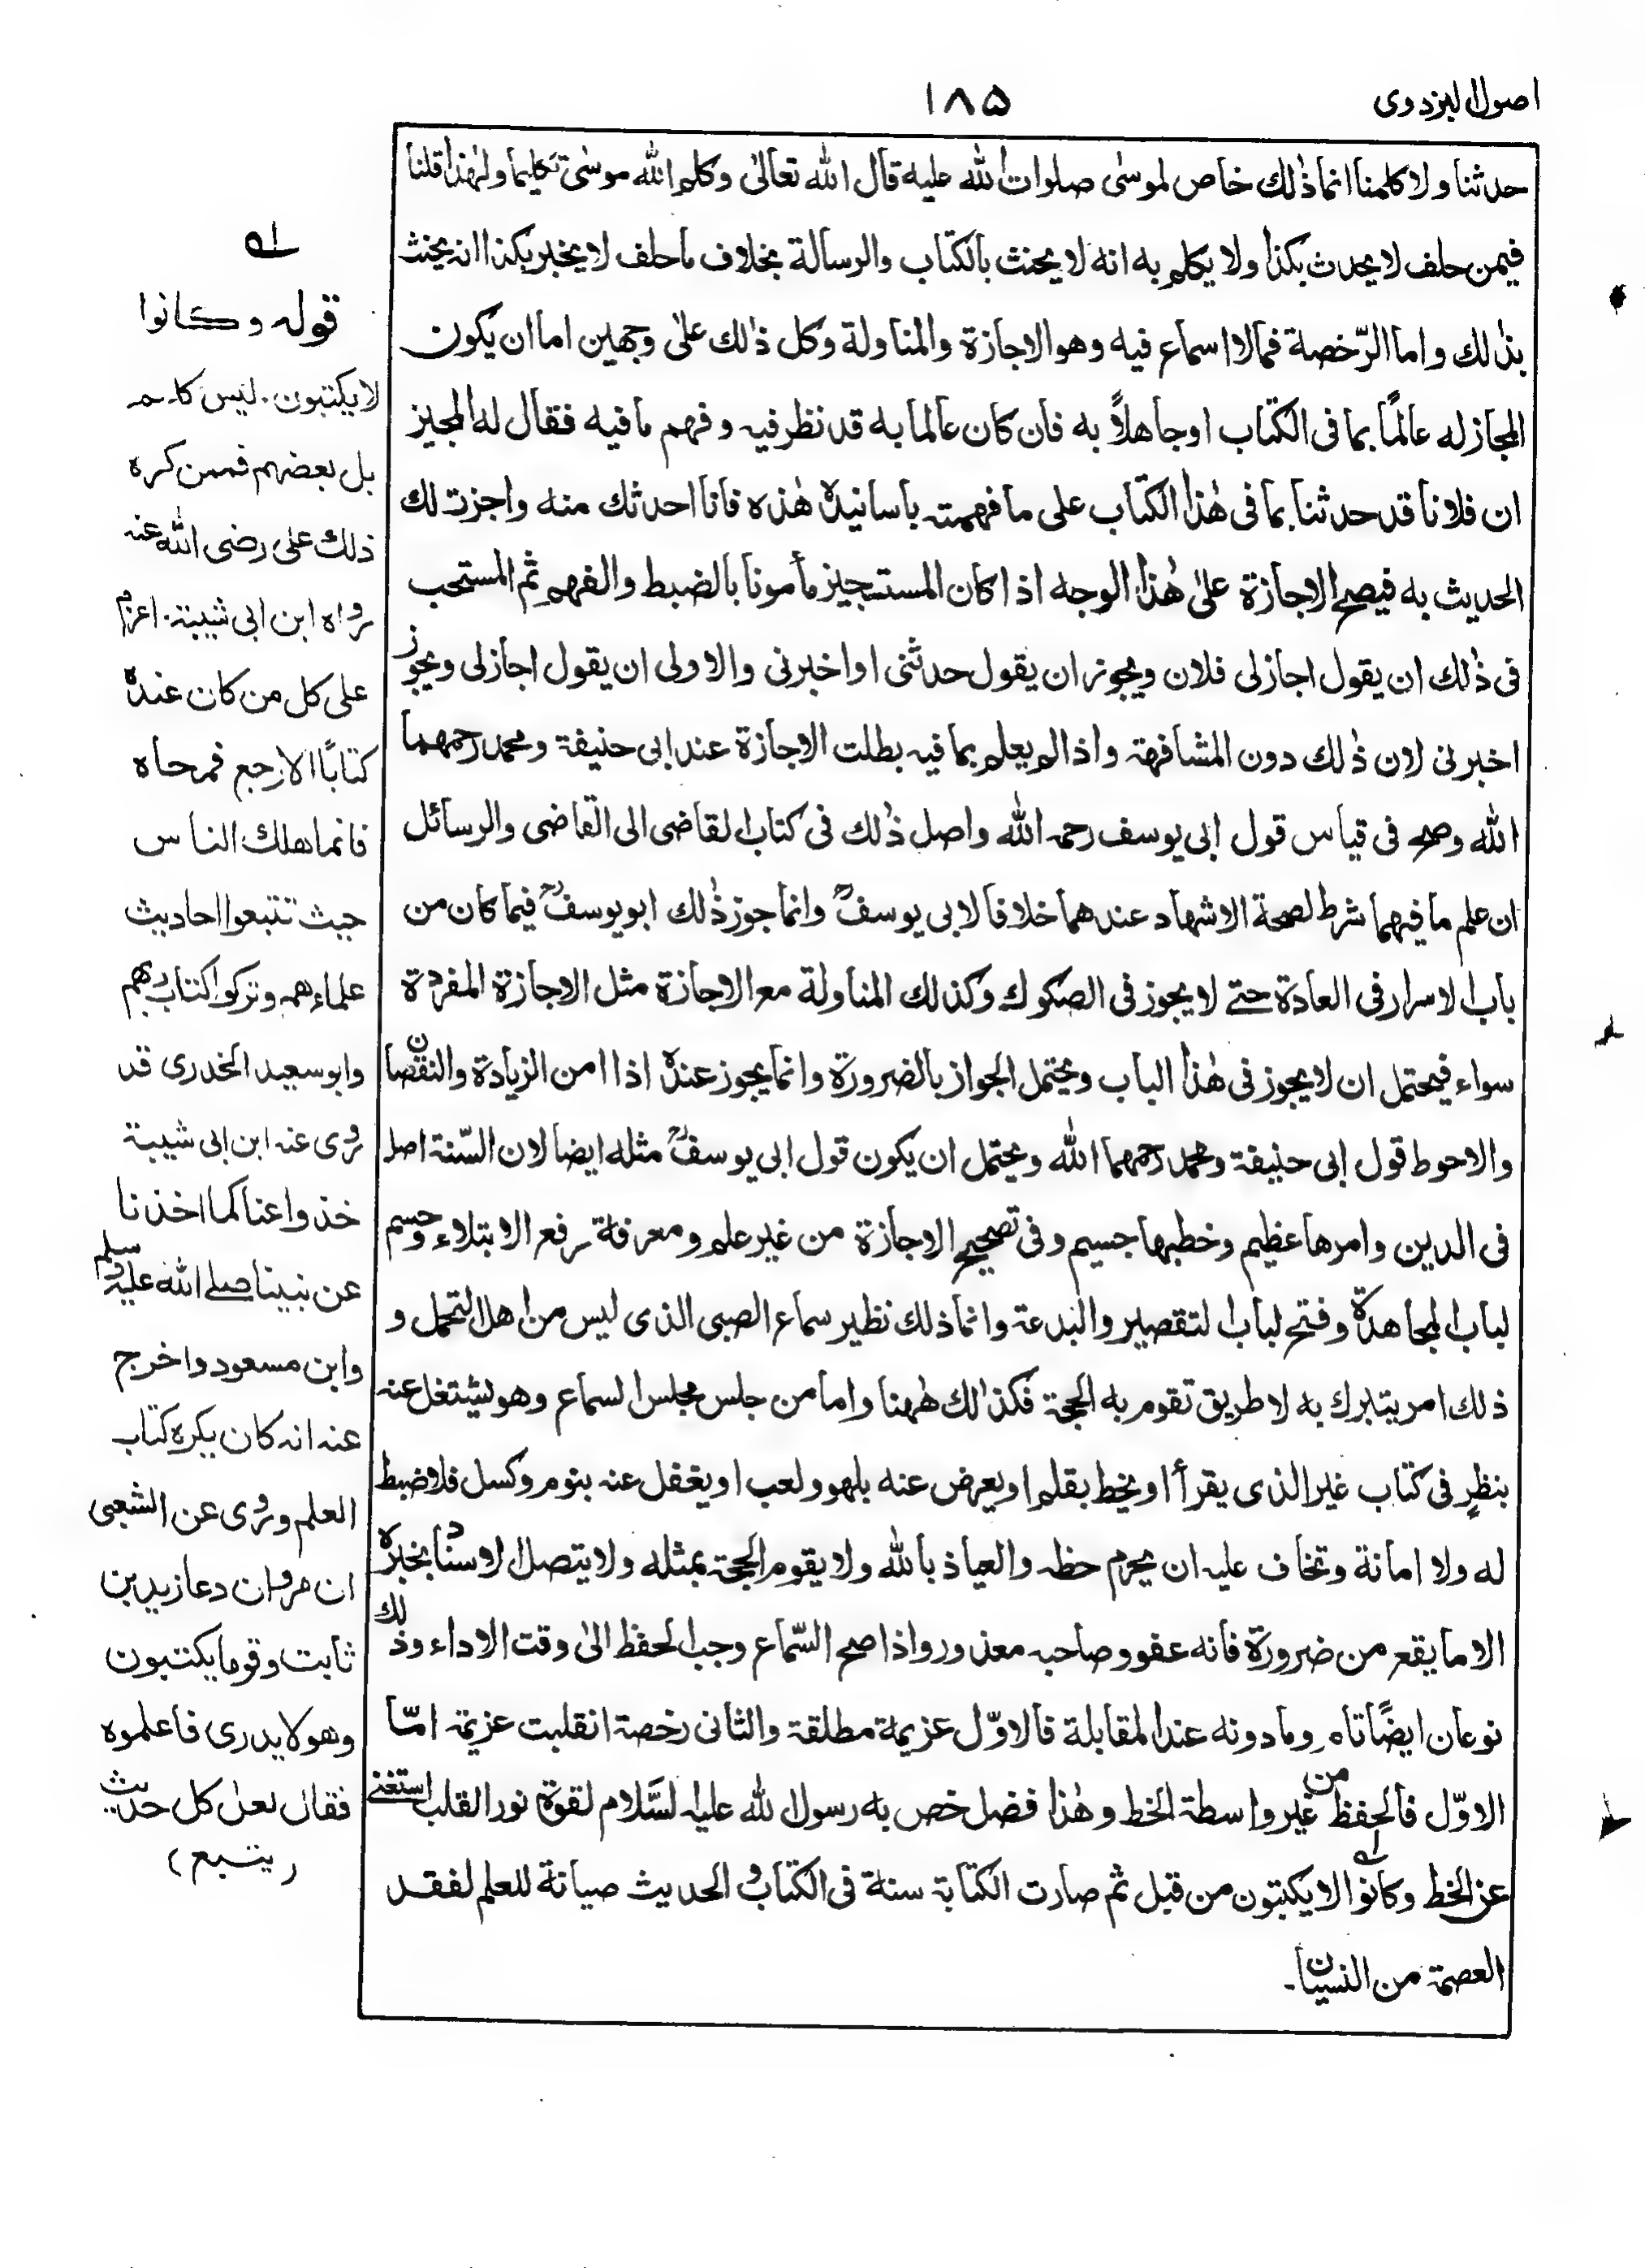 اصول البزدوى
١٨٥
حدثنا ولا كلمنا انما ذٰلك خاص لموسٰى صلوات الله عليه قال الله تعالىٰ وكلم الله موسٰى تكليما ولهٰذا قلنا
فيمن حلف لا يحدث بكذا ولا يكلم به انه لا يحنث بالكتاب والرسالة بخلاف ما حلف لا يخبر بكذا انه يحنث
بذٰلك واما الرّخصة فما لا اسماع فيه وهو الاجازة والمناولة وكل ذٰلك علىٰ وجهين اما ان يكون
المجاز له عالمًا بما فى الكتاب او جاهلاً به فان كان عالما به قد نظر فيه وفهم ما فيه فقال له المجيز
ان فلانا قد حدثنا بما فى هٰذا الكتاب على ما فهمته باسانيده هٰذه فانا احدثك منه واجزت لك
الحديث به فيصح الاجازة علىٰ هٰذا الوجه اذا كان المستجيز مأمونا بالضبط والفهم ثم المستحب
فى ذٰلك ان يقول اجاز لى فلان ويجوز ان يقول حدثنى او اخبرنى والاولى ان يقول اجاز لى ويجوز
اخبرنى لان ذٰلك دون المشافهة واذا لم يعلم بما فيه بطلت الاجازة عند ابى حنيفة ومحمد رحمهما
الله وصح فى قياس قول ابى يوسف رحمه الله واصل ذٰلك فى كتاب القاضى الى القاضى والرسائل
ان علم ما فيهما شرط لصحة الاشهاد عندهما خلافا لابى يوسفؒ وانما جوز ذٰلك ابو يوسفؒ فيما كان من
باب الاسرار فى العادة حتے لا يجوز فى الصكوك وكذلك المناولة مع الاجازة مثل الاجازة المفردة
سواء فيحتمل ان لا يجوز فى هٰذا الباب ويحتمل الجواز بالضرورة وانما يجوز عنده اذا امن الزيادة والنقصان
والاحوط قول ابى حنيفة ومحمد رحمهما الله ويحتمل ان يكون قول ابى يوسفؒ مثله ايضا لان السّنة اصل
فى الدين وامرها عظيم وخطبها جسيم وفى تصحيح الاجازة من غير علم ومعرفة رفع الابتلاء وحسم
لباب المجاهدة وفتح لباب التقصير والبدعة وانما ذلك نظير سماع الصبى الذى ليس من اهل التحمل و
ذلك امر يتبرك به لا طريق تقوم به الحجة فكذٰلك هٰهنا واما من جلس مجلس السماع وهو يشتغل عنه
بنظرٍ فى كتاب غير الذى يقرأ او يخط بقلم او يعرض عنه بلهو ولعب او يغفل عنه بنوم وكسل فلا ضبط
له ولا امانة وتخاف عليه ان يحرم حظه والعياذ بالله ولا يقوم الحجة بمثله ولا يتصل الاسناد بخبره
الا ما يقع من ضرورة فانه عفو وصاحبه معذور واذا صح السّماع وجب الحفظ الىٰ وقت الاداء وذٰلك
نوعان ايضًا تام وما دونه عند المقابلة فالاوّل عزيمة مطلقة والثانى رخصة انقلبت عزيمة امّا
الاوّل فالحفظ من غير واسطة الخط وهٰذا فضل خص به رسول الله عليه السَّلام لقوة نور القلب استغنے
عن الخط وكانوا لا يكتبون من قبل ثم صارت الكتابة سنة فى الكتاب والحديث صيانة للعلم لفقد
العصمة من النسيان۔
لہ
قوله وكانوا
لا يكتبون. ليس كلهم
بل بعضهم فممن كره
ذلك على رضى الله عنه
رواه ابن ابى شيبة. اعزم
على كل من كان عنده
كتابًا الا رجع فمحاه
فانما هلك الناس
حيث تتبعوا احاديث
علماءهم وتركوا كتاب ربهم
وابو سعيد الخدرى قد
روى عنه ابن ابى شيبة
خذوا عنا كما اخذنا
عن نبينا صلے الله عليه وسلم
وابن مسعود واخرج
عنه انه كان يكره كتاب
العلم وروى عن الشعبى
ان مروان دعا زيد بن
ثابت وقوما يكتبون
وهو لا يدرى فاعلموه
فقال لعل كل حديث
(يتبع)